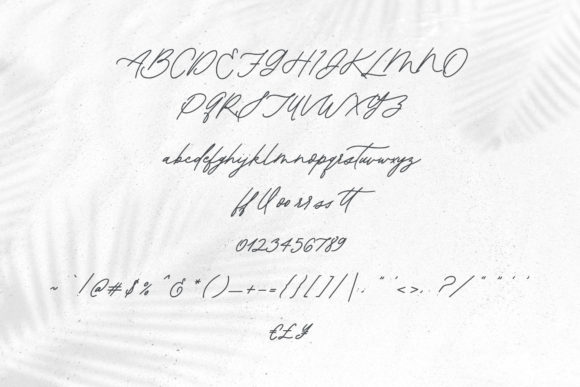 ABCDEFGHIJKLMNO
PQRSTUVWXYZ
abcdefghijklmnopqrstuvwxyz
ff ll oo rr ss tt
0123456789
~ ` ! @ # $ % ^ & * ( ) _ + - = { } [ ] / | : , " ' < > . ? / “ ” ‘ ’
€ £ ¥